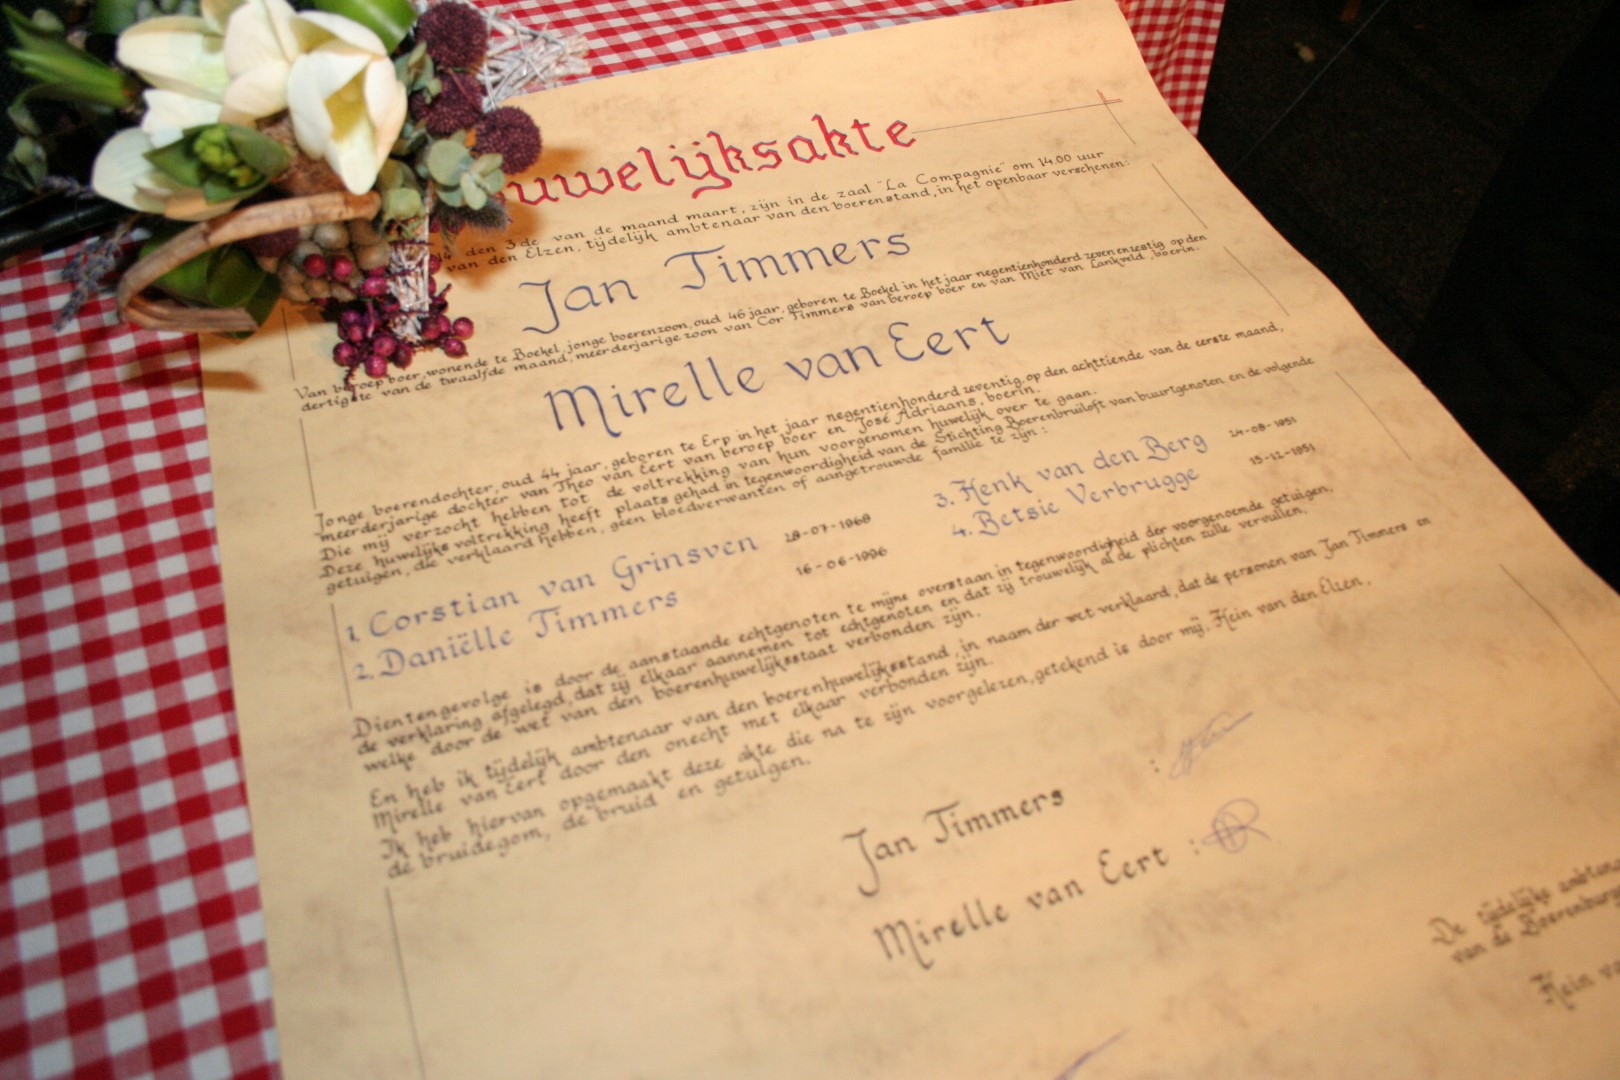 uwelijksakte
14 den 3de van de maand maart, zijn in de zaal "La Compagnie" om 14.00 uur
van den Elzen, tijdelijk ambtenaar van den boerenstand, in het openbaar verschenen:
Jan Timmers
Van beroep boer, wonende te Boekel, jonge boerenzoon, oud 46 jaar, geboren te Boekel in het jaar negentienhonderd zevenenzestig op den
dertigste van de twaalfde maand, meerderjarige zoon van Cor Timmers van beroep boer en van Miet van Lankveld, boerin.
Mirelle van Eert
Jonge boerendochter, oud 44 jaar, geboren te Erp in het jaar negentienhonderd zeventig, op den achttiende van de eerste maand,
meerderjarige dochter van Theo van Eert van beroep boer en José Adriaans, boerin.
Die mij verzocht hebben tot de voltrekking van hun voorgenomen huwelijk over te gaan.
Deze huwelijks voltrekking heeft plaats gehad in tegenwoordigheid van de Stichting Boerenbruiloft van buurtgenoten en de volgende
getuigen, die verklaard hebben, geen bloedverwanten of aangetrouwde familie te zijn:
1. Corstian van Grinsven 28-07-1968
2. Daniëlle Timmers 16-06-1996
3. Henk van den Berg 24-08-1951
4. Betsie Verbrugge 15-12-1951
Dientengevolge is door de aanstaande echtgenoten te mijne overstaan in tegenwoordigheid der voorgenoemde getuigen,
de verklaring afgelegd, dat zij elkaar aannemen tot echtgenoten en dat zij trouwelijk al de plichten zulle vervullen,
welke door de wet van den boerenhuwelijksstaat verbonden zijn.
En heb ik tijdelijk ambtenaar van den boerenhuwelijksstand, in naam der wet verklaard, dat de personen van Jan Timmers en
Mirelle van Eert door den onecht met elkaar verbonden zijn.
Ik heb hiervan opgemaakt deze akte die na te zijn voorgelezen, getekend is door mij, Hein van den Elzen,
de bruidegom, de bruid en getuigen.
Jan Timmers :
Mirelle van Eert :
De tijdelijke
van de
Hein